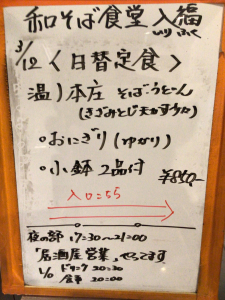 和そば食堂 入福
いり ふく
3/12 〈日替定食〉
温)本庄 そば・うどん
(きざみとじ天かすうた)
・おにぎり(ゆかり)
・小鉢 2品付
¥850-
入口こちら
夜の部 17:30〜21:00
「居酒屋営業」やってます
L/O ドリンク 20:30
食事 20:00